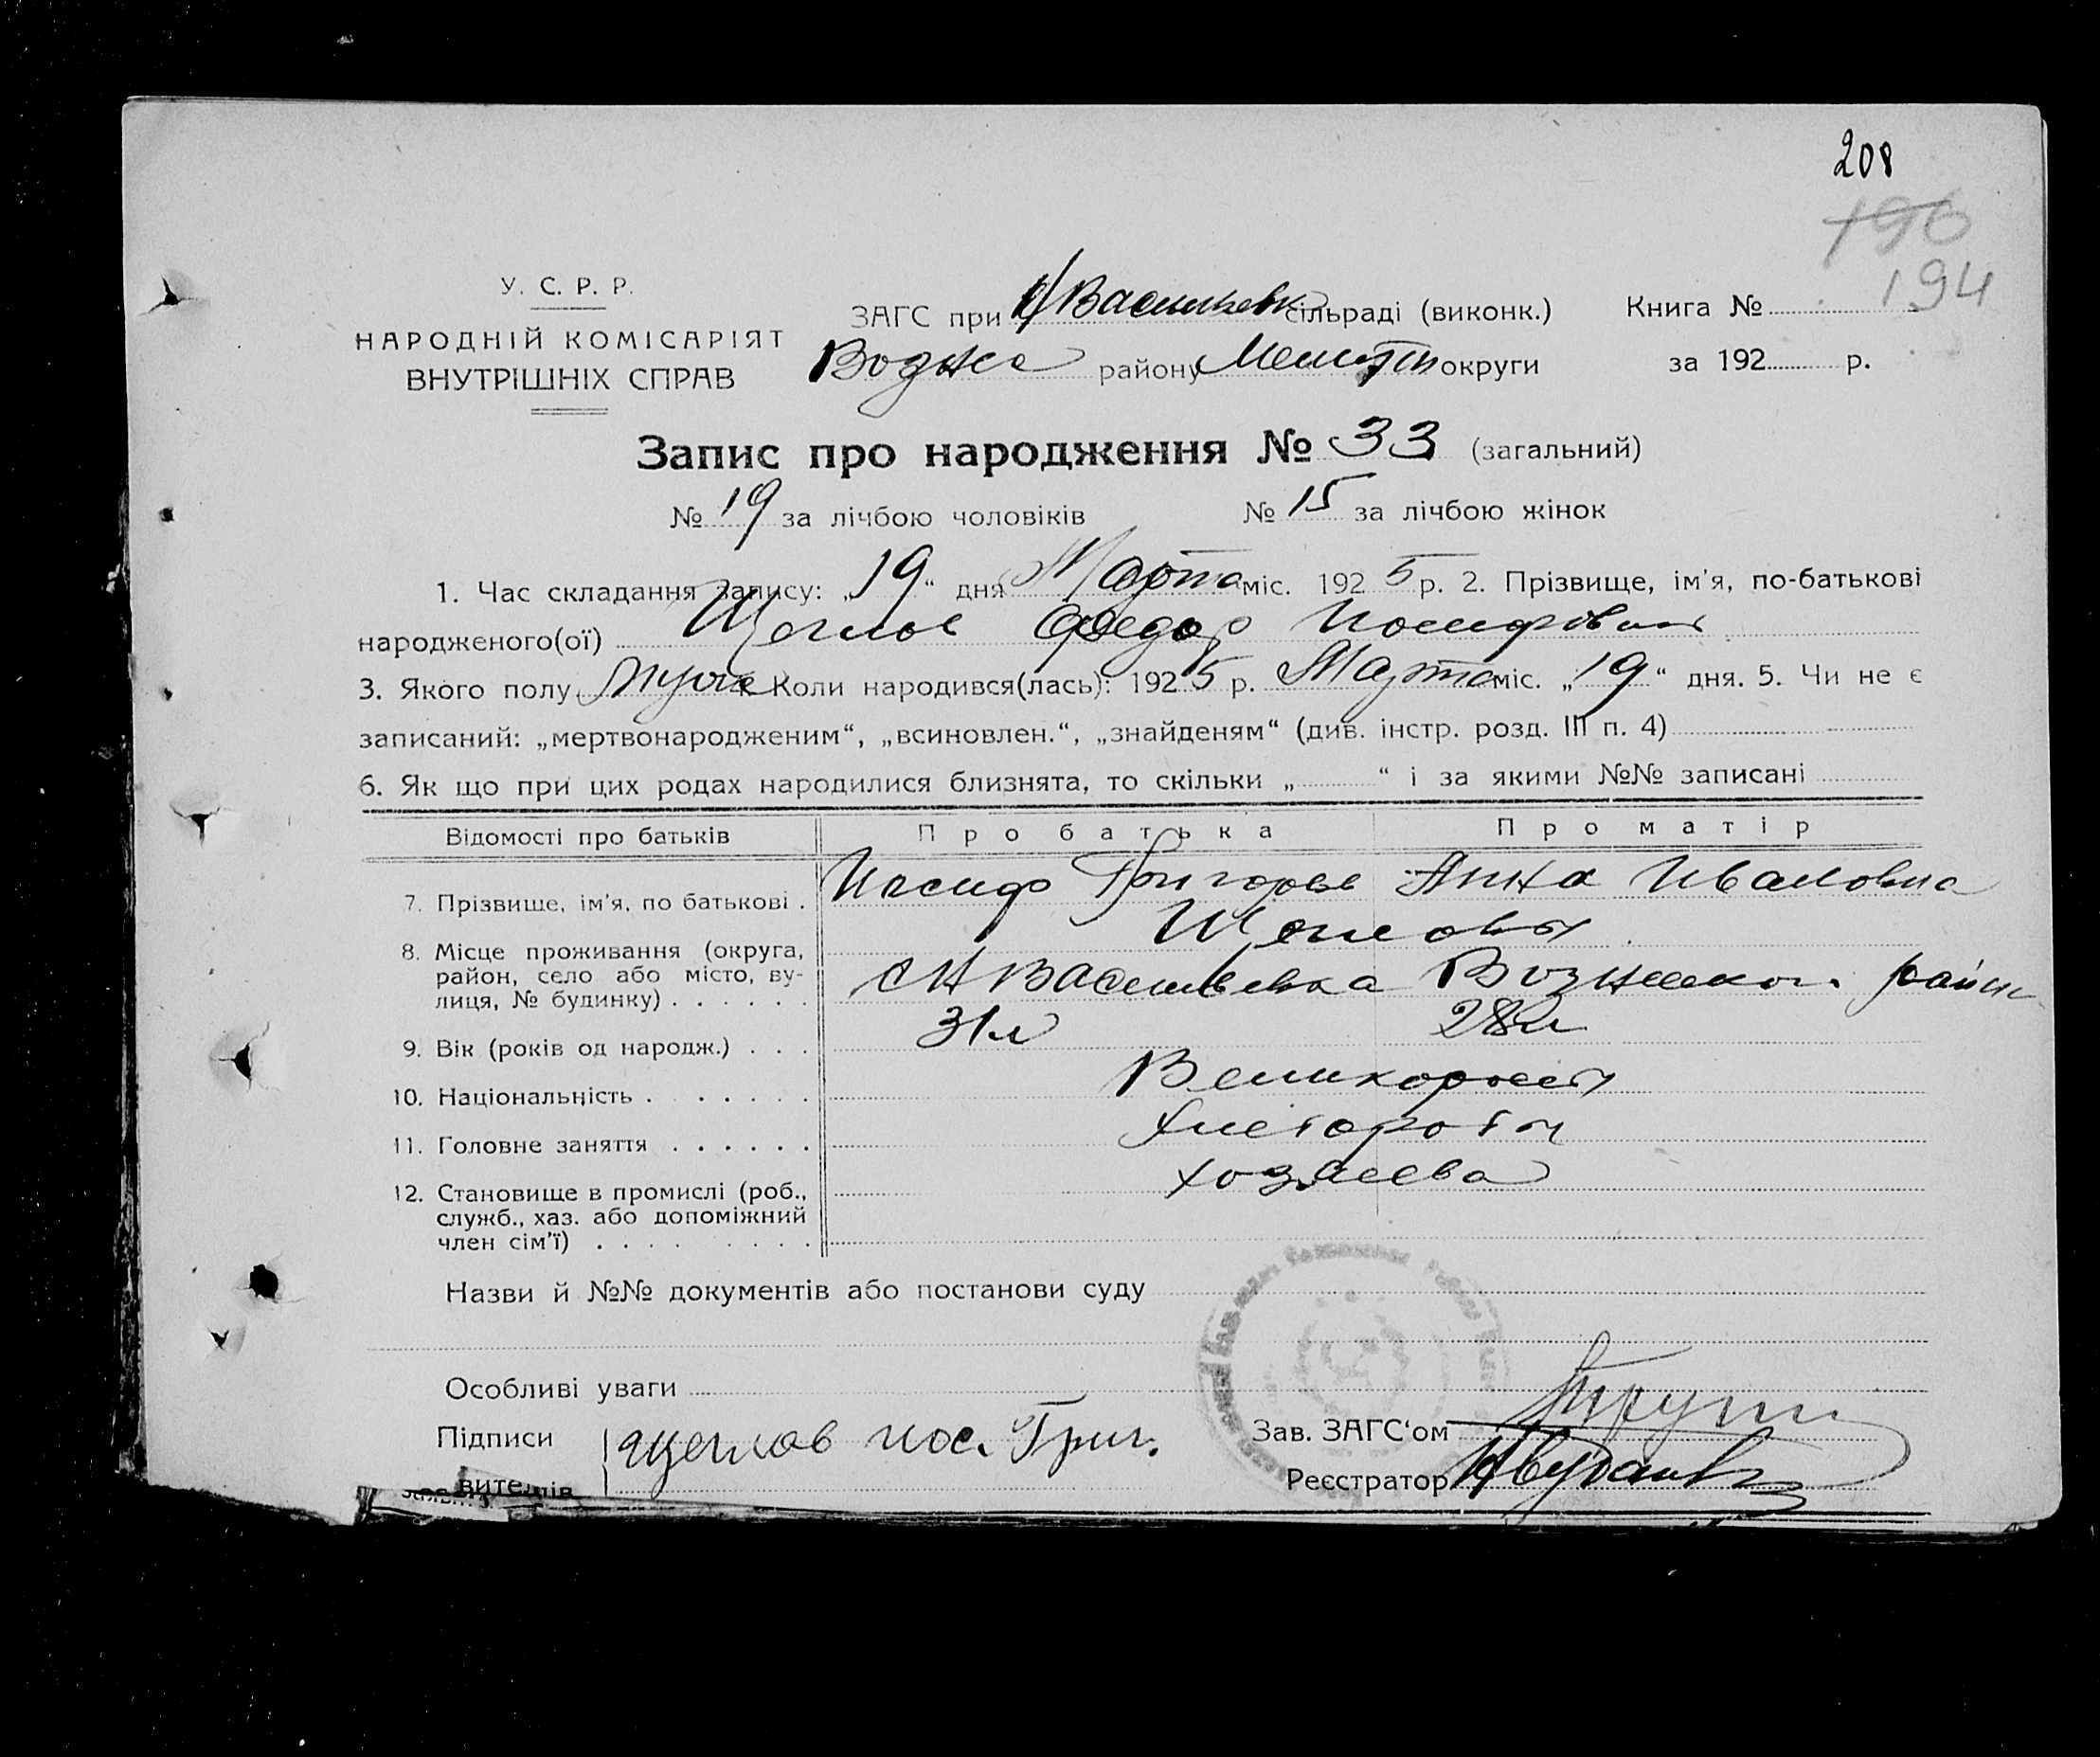 208
190
194
У. С. Р. Р.
НАРОДНІЙ КОМІСАРІЯТ
ВНУТРІШНІХ СПРАВ
ЗАГС при Н/Васильевк сільраді (виконк.)
району округи
Книга №
за 192 р.
Запис про народження № 33 (загальний)
№ 19 за лічбою чоловіків № 15 за лічбою жінок
1. Час складання запису: „19“ дня Марта міс. 1925 р. 2. Прізвище, ім'я, по-батькові
народженого(ої) Щеглов Федор Иосифович
3. Якого полу Муж Коли народився(лась): 1925 р. Марта міс. „19“ дня. 5. Чи не є
записаний: „мертвонародженим“, „всиновлен.“, „знайденям“ (див. інстр. розд. III п. 4)
6. Як що при цих родах народилися близнята, то скільки „ “ і за якими №№ записані
Відомості про батьків Про батька Про матір
7. Прізвище, ім'я, по батькові . Иосиф Григорьев Анна Ивановна
Щегловы
8. Місце проживання (округа,
район, село або місто, ву-
лиця, № будинку) . . . . . . с Н Васильевка район
9. Вік (років од народж.) . . . 31 л 28 л
10. Національність . . . . . . . Великороссы
11. Головне заняття . . . . . . Хлеборобы
12. Становище в промислі (роб.,
служб., хаз. або допоміжний
член сім'ї) . . . . . . . . хозяева
Назви й №№ документів або постанови суду
Особливі уваги
Підписи
вителів
Щеглов Иос. Григ.
Зав. ЗАГС'ом
Реєстратор